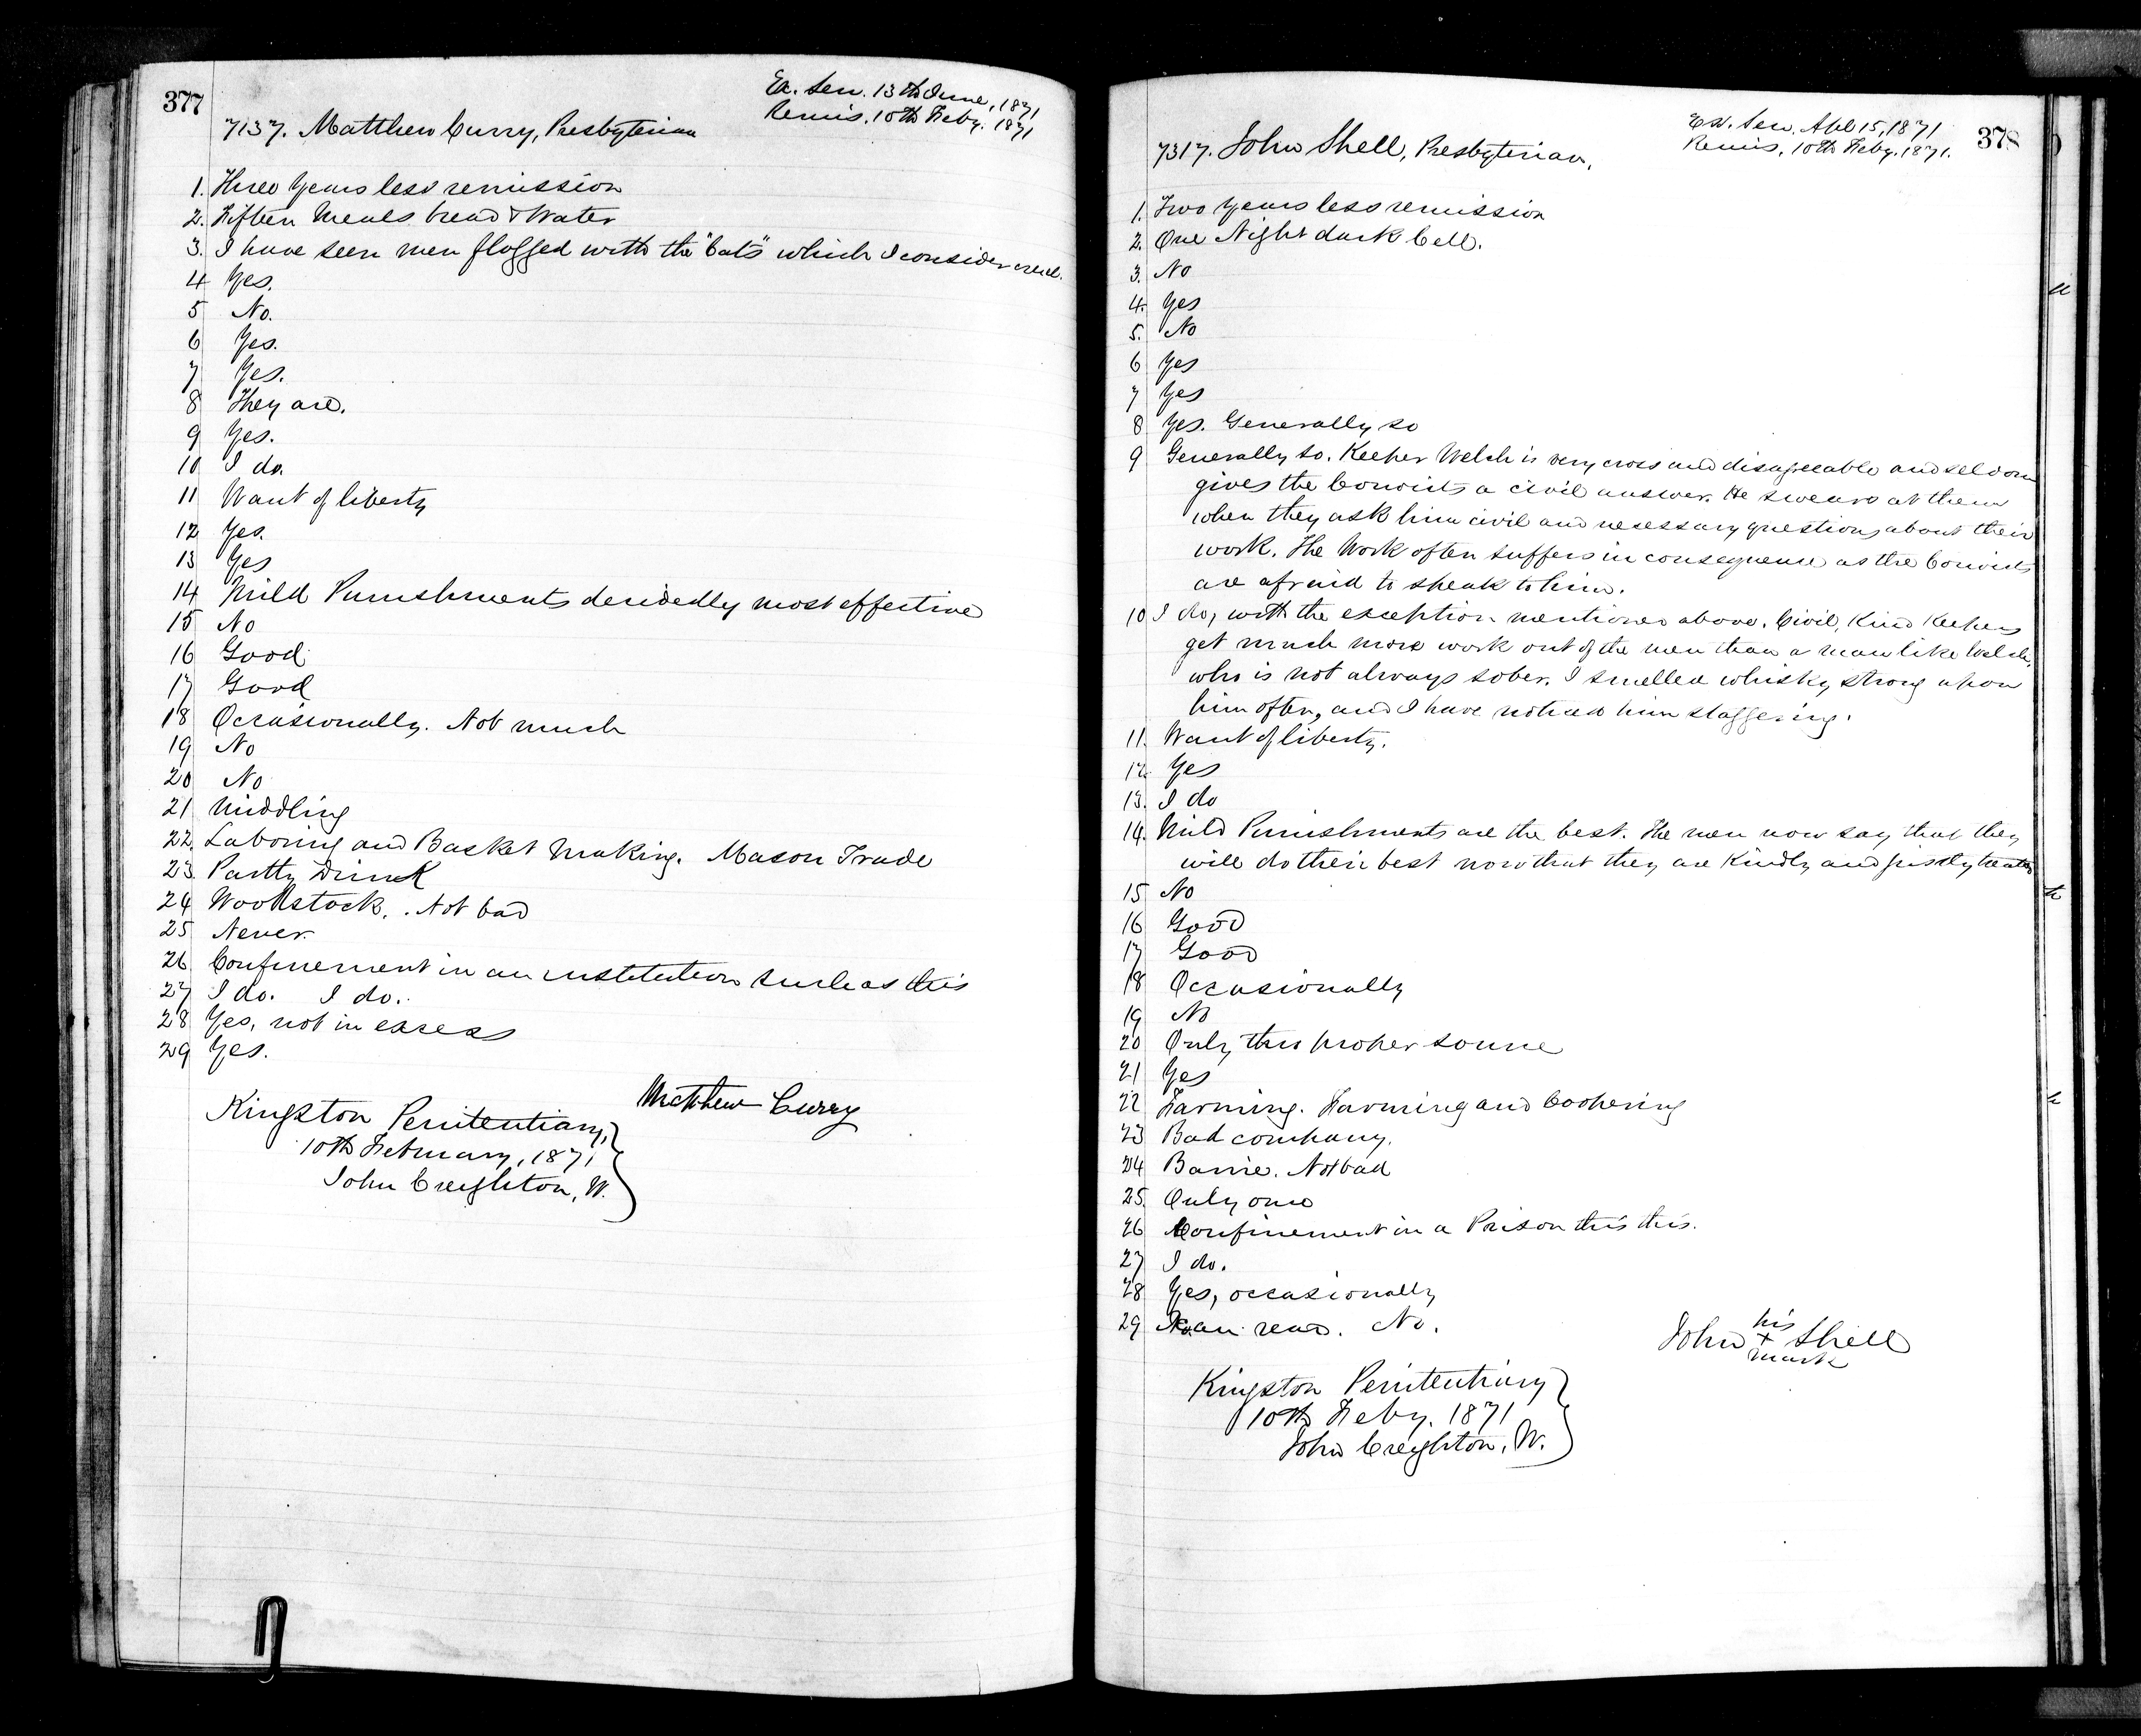 377
Ex. Sen. 13th June, 1871
Remis. 10th Feby. 1871
7137. Matthew Curry, Presbyterian
1. Three Years less remission
2. Fifteen Meals bread & Water
3. I have seen men flogged with the "Cats" which I consider cruel.
4 Yes.
5 No.
6 Yes.
7 Yes.
8 They are.
9 Yes.
10 I do.
11 Want of liberty
12 Yes.
13 Yes
14 Mild Punishments decidedly most effective
15 No
16 Good
17 Good
18 Occasionally. Not much
19 No
20 No
21 Middling
22 Laboring and Basket Making. Mason Trade
23 Partly Drink
24 Woodstock. Not bad
25 Never.
26 Confinement in an institution such as this
27 I do. I do.
28 Yes, not in excess
29 Yes.
Matthew Curry
Kingston Penitentiary,
10th February, 1871
John Creighton, W.
378
Ex. Sen. Apl 15, 1871
Remis, 10th Feby. 1871.
7317. John Shell, Presbyterian.
1. Two Years less remission
2. One Night dark Cell.
3. No
4. Yes
5. No
6 Yes
7 Yes
8 Yes. Generally so
9 Generally so. Keeper Welch is very cross and disagreeable and seldom
gives the Convicts a civil answer. He swears at them
when they ask him civil and necessary questions about their
work. The Work often suffers in consequence as the Convicts
are afraid to speak to him.
10 I do, with the exception mentioned above. Civil, Kind Keepers
get much more work out of the men than a man like Welch,
who is not always sober. I smelled whisky strong upon
him often, and I have noticed him staggering.
11. Want of liberty.
12 Yes
13. I do
14. Mild Punishments are the best. The men now say that they
will do their best now that they are Kindly and justly treated
15 No
16 Good
17 Good
18 Occasionally
19 No
20 Only thro proper source
21 Yes
22 Farming. Farming and Coopering
23 Bad company.
24 Barrie. Not bad
25. Only one
26 Confinement in a Prison this this.
27 I do.
28 Yes, occasionally
29 can read. No.
his
John + Shell
mark
Kingston Penitentiary
10th Feby. 1871
John Creighton, W.